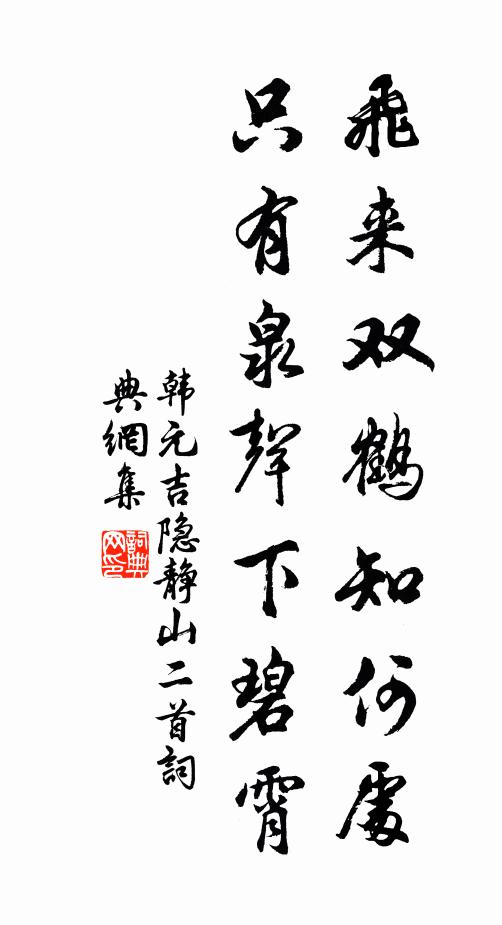 飛来双鶴知何處
只有泉聲下碧霄
韩元吉隐静山二首詞
典網集
詞典
网印